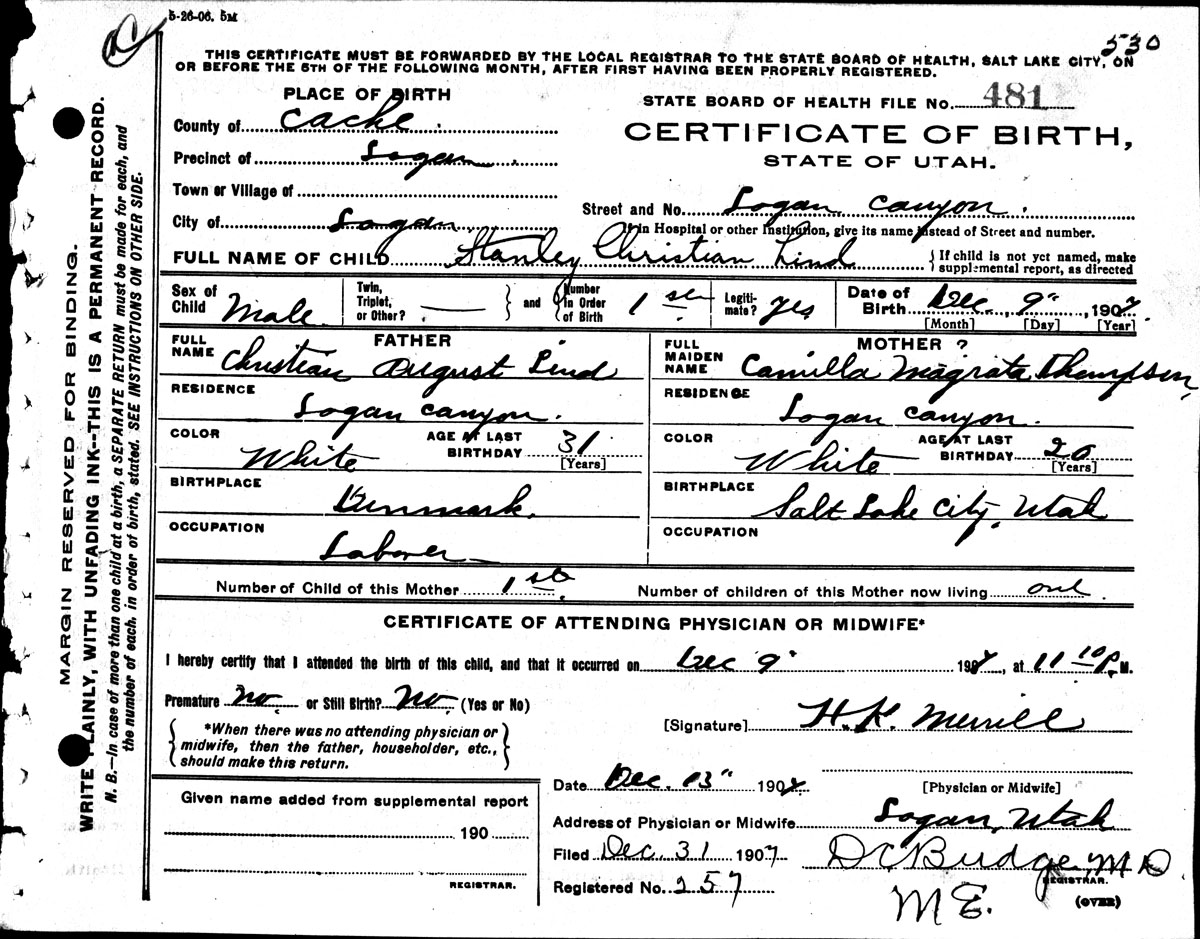 5-26-06. 5M
530
THIS CERTIFICATE MUST BE FORWARDED BY THE LOCAL REGISTRAR TO THE STATE BOARD OF HEALTH, SALT LAKE CITY, ON
OR BEFORE THE 5TH OF THE FOLLOWING MONTH, AFTER FIRST HAVING BEEN PROPERLY REGISTERED.
PLACE OF BIRTH
STATE BOARD OF HEALTH FILE No. 481
County of Cache.
CERTIFICATE OF BIRTH,
Precinct of Logan.
STATE OF UTAH.
Town or Village of
Street and No. Logan Canyon.
City of Logan
If in Hospital or other Institution, give its name instead of Street and number.
FULL NAME OF CHILD Stanley Christian Lind
If child is not yet named, make
supplemental report, as directed
Sex of Child Male. Twin, Triplet, or Other? — and Number in Order of Birth 1st Legitimate? Yes Date of Birth Dec. 9", 1907
[Month] [Day] [Year]
FATHER
MOTHER ?
FULL NAME Christian August Lind
FULL MAIDEN NAME Camilla Magrata Thompson,
RESIDENCE Logan Canyon.
RESIDENCE Logan Canyon.
COLOR White AGE AT LAST BIRTHDAY 31 [Years]
COLOR White AGE AT LAST BIRTHDAY 20 [Years]
BIRTHPLACE Denmark.
BIRTHPLACE Salt Lake City, Utah
OCCUPATION Laborer
OCCUPATION
Number of Child of this Mother 1st Number of children of this Mother now living one.
CERTIFICATE OF ATTENDING PHYSICIAN OR MIDWIFE*
I hereby certify that I attended the birth of this child, and that it occurred on Dec 9" 1907, at 11 10 P. M.
Premature No. or Still Birth? No. (Yes or No)
*When there was no attending physician or
midwife, then the father, householder, etc.,
should make this return.
[Signature] H.K. Merrill
Date Dec. 13" 1907.
[Physician or Midwife]
Given name added from supplemental report
Address of Physician or Midwife Logan, Utah
190
Filed Dec. 31 1907 D C Budge, M D
REGISTRAR.
REGISTRAR.
Registered No. 257
M E.
(OVER)
MARGIN RESERVED FOR BINDING.
WRITE PLAINLY, WITH UNFADING INK--THIS IS A PERMANENT RECORD.
N. B.—In case of more than one child at a birth, a SEPARATE RETURN must be made for each, and
the number of each, in order of birth, stated. SEE INSTRUCTIONS ON OTHER SIDE.